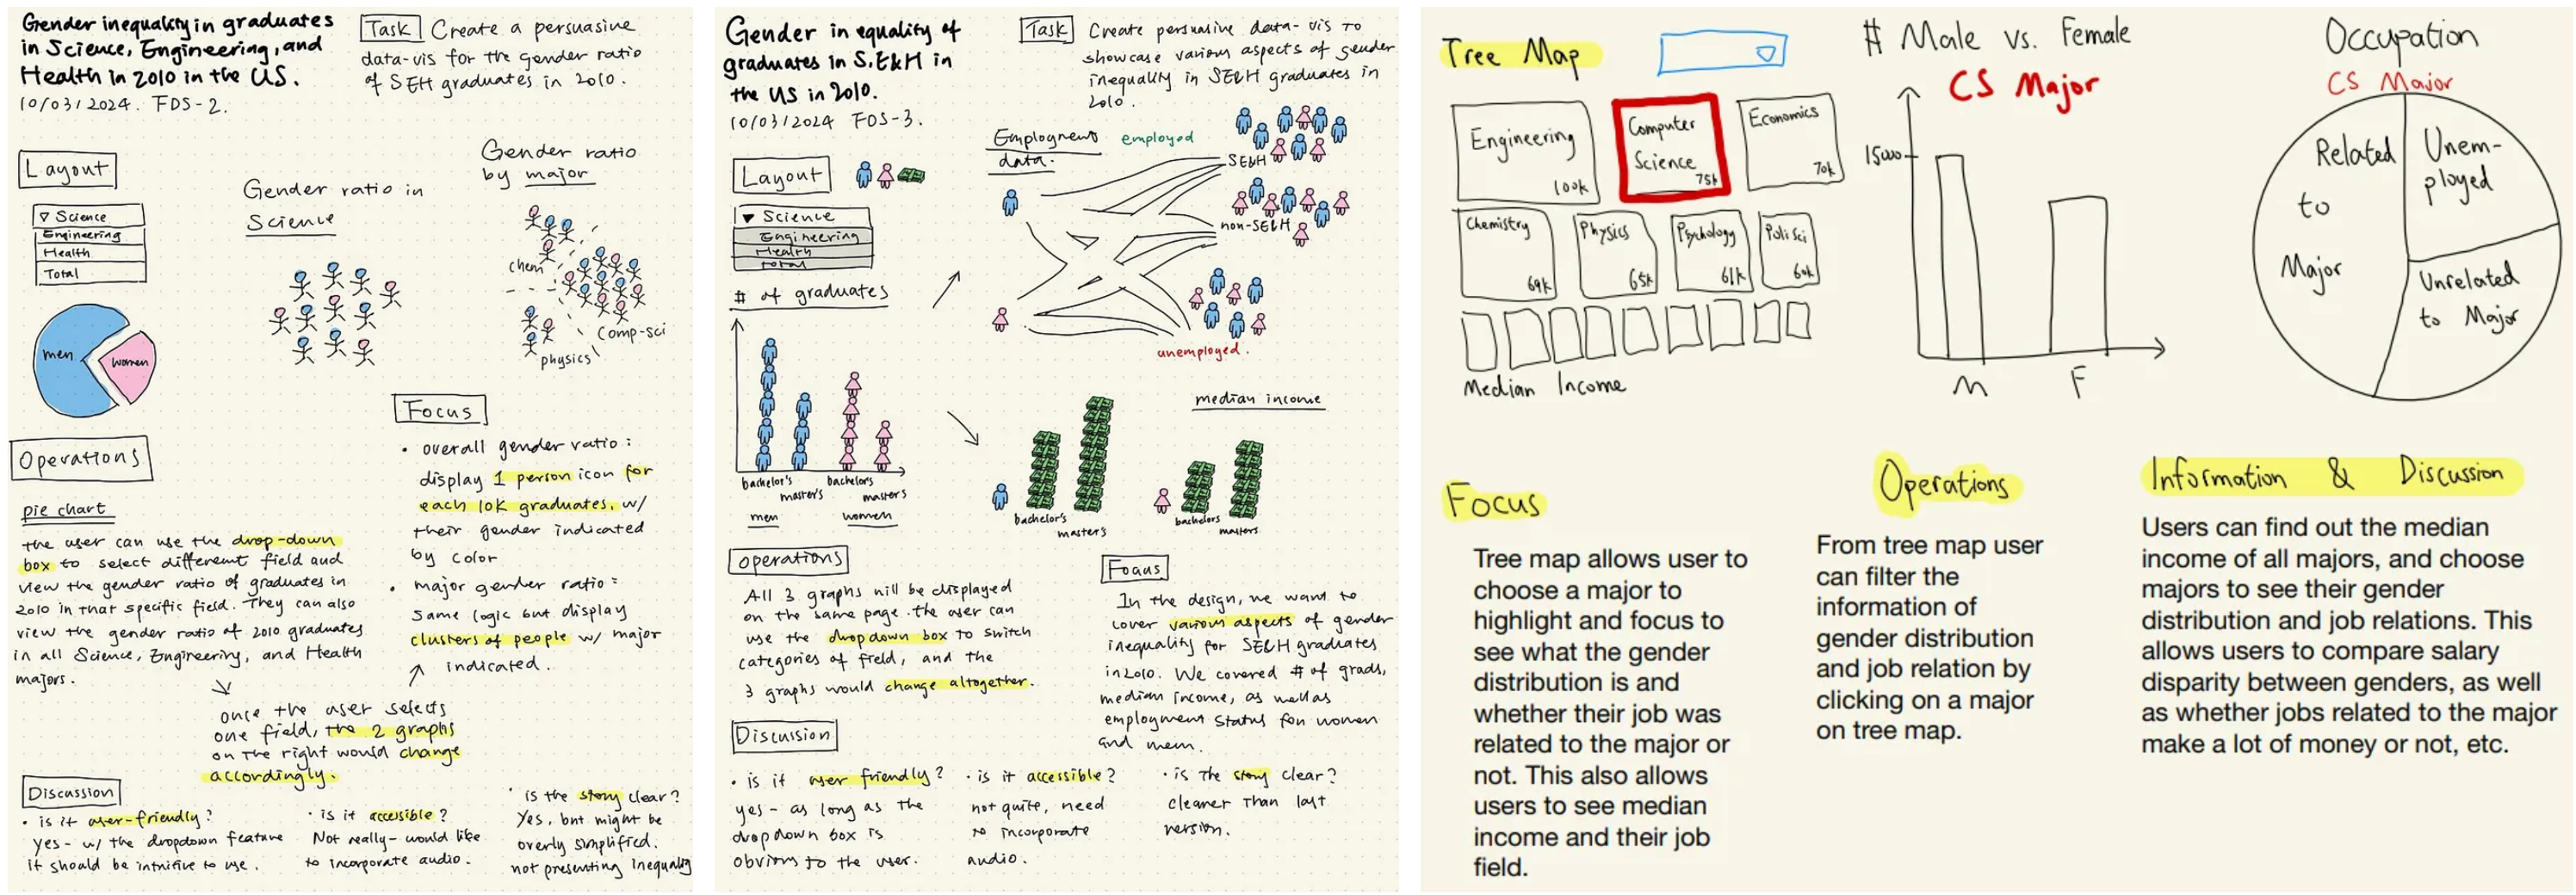 Gender inequality in graduates
in Science, Engineering, and
Health in 2010 in the US.
10/03/2024. FDS-2.
Task Create a persuasive
data-vis for the gender ratio
of SEH graduates in 2010.
Layout
▽ Science
Engineering
Health
Total
men
women
Gender ratio in
Science
Gender ratio
by major
chem
comp-sci
physics
Operations
pie chart
the user can use the drop-down
box to select different field and
view the gender ratio of graduates in
2010 in that specific field. They can also
view the gender ratio of 2010 graduates
in all Science, Engineering, and Health
majors.
once the user selects
one field, the 2 graphs
on the right would change
accordingly.
Focus
• overall gender ratio:
display 1 person icon for
each 10k graduates, w/
their gender indicated
by color
• major gender ratio:
same logic but display
clusters of people w/ major
indicated.
Discussion
• is it user-friendly?
yes- w/ the dropdown feature
it should be intuitive to use.
• is it accessible?
Not really- would like
to incorporate audio.
• is the story clear?
Yes, but might be
overly simplified.
not presenting inequality
Gender in equality of
graduates in S.E&H in
the US in 2010.
10/03/2024 FDS-3.
Task Create persuasive data-vis to
showcase various aspects of gender
inequality in SE&H graduates in
2010.
Layout
▼ Science
Engineering
Health
Total
# of graduates
bachelor's
master's
bachelors
masters
men
women
Employment
data.
employed
SE&H
non-SE&H
unemployed.
median income
bachelor's
master's
bachelors
masters
operations
All 3 graphs will be displayed
on the same page. the user can
use the dropdown box to switch
categories of field, and the
3 graphs would change altogether.
Focus
In the design, we want to
cover various aspects of gender
inequality for SE&H graduates
in 2010. We covered # of grads,
median income, as well as
employment status for women
and men.
Discussion
• is it user friendly?
yes- as long as the
dropdown box is
obvious to the user.
• is it accessible?
not quite, need
to incorporate
audio.
• is the story clear?
cleaner than last
version.
Tree Map
Engineering
100k
Computer
Science
75k
Economics
70k
Chemistry
69k
Physics
65k
Psychology
61k
Poli Sci
60k
Median Income
# Male vs. Female
CS Major
15000
M
F
Occupation
CS Major
Related
to
Major
Unem-
ployed
Unrelated
to Major
Focus
Tree map allows user to
choose a major to
highlight and focus to
see what the gender
distribution is and
whether their job was
related to the major or
not. This also allows
users to see median
income and their job
field.
Operations
From tree map user
can filter the
information of
gender distribution
and job relation by
clicking on a major
on tree map.
Information & Discussion
Users can find out the median
income of all majors, and choose
majors to see their gender
distribution and job relations. This
allows users to compare salary
disparity between genders, as well
as whether jobs related to the major
make a lot of money or not, etc.